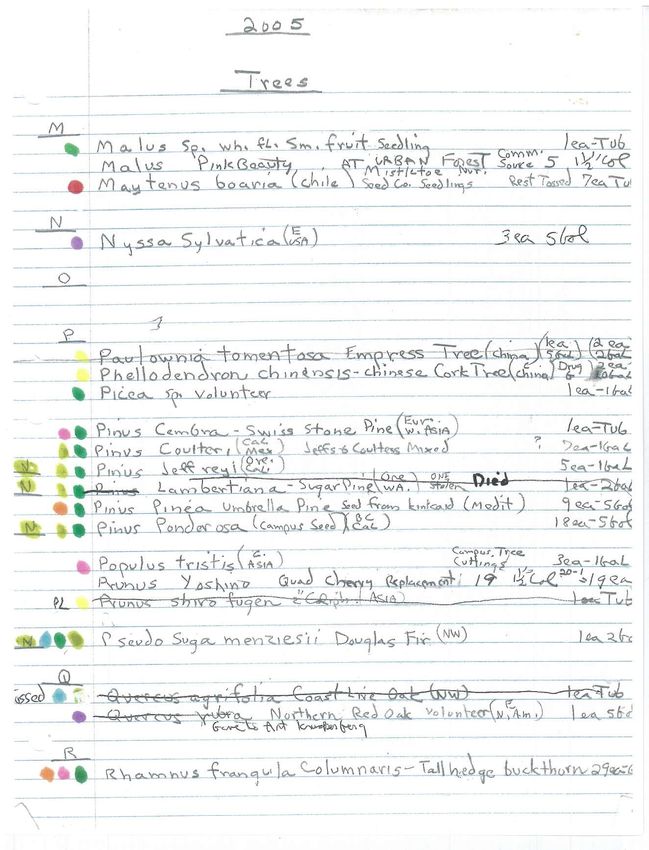 2005
Trees
M
Malus sp. wh. fl. sm. fruit Seedling 1ea-Tub
Malus Pink Beauty AT URBAN Forest Comm. Source 5 1½" Col
Maytenus boaria (chile) Mistletoe Nur. Seed Co. Seedlings Rest Tossed 7ea Tu
N
Nyssa Sylvatica (E USA) 3ea 5Gal
O
P
Paulownia tomentosa Empress Tree (china) (1ea 5Gal) (2ea 2Gal
Phellodendron chinensis-chinese Cork Tree (china) Drug 2ea
Picea sp volunteer 1ea-1Gal
Pinus Cembra - Swiss Stone Pine (Eur. W. ASIA) 1ea-Tub
Pinus Coulteri (Cal Mex) Jeffs & Coulters Mixed ? 7ea-1Gal
N Pinus Jeffreyi (Ore. Cal.) 5ea-1Gal
N Pinus Lambertiana - Sugar Pine (Ore WA.) ONE Stolen Died 1ea-2Gal
Pinus Pinea Umbrella Pine Seed from kincaid (Medit) 9ea-5Gal
N Pinus Ponderosa (Campus Seed) (BC Cal) 18ea-5Gal
Populus tristis (C. ASIA) Campus Tree Cuttings 3ea-1Gal
Prunus Yoshino Quad Cherry Replacement: 19 1½" Col 20-1=19ea
PL Prunus shirofugen ASIA) 1ea Tub
N Pseudo Suga menziesii Douglas Fir (NW) 1ea 2Ga
Q
ossed Quercus agrifolia Coast Live Oak (NW) 1ea Tub
Quercus rubra Northern Red Oak volunteer (E. N. Am.) 1ea 5Ga
Gave to Art
R
Rhamnus frangula Columnaris - Tallhedge buckthorn 29ea-